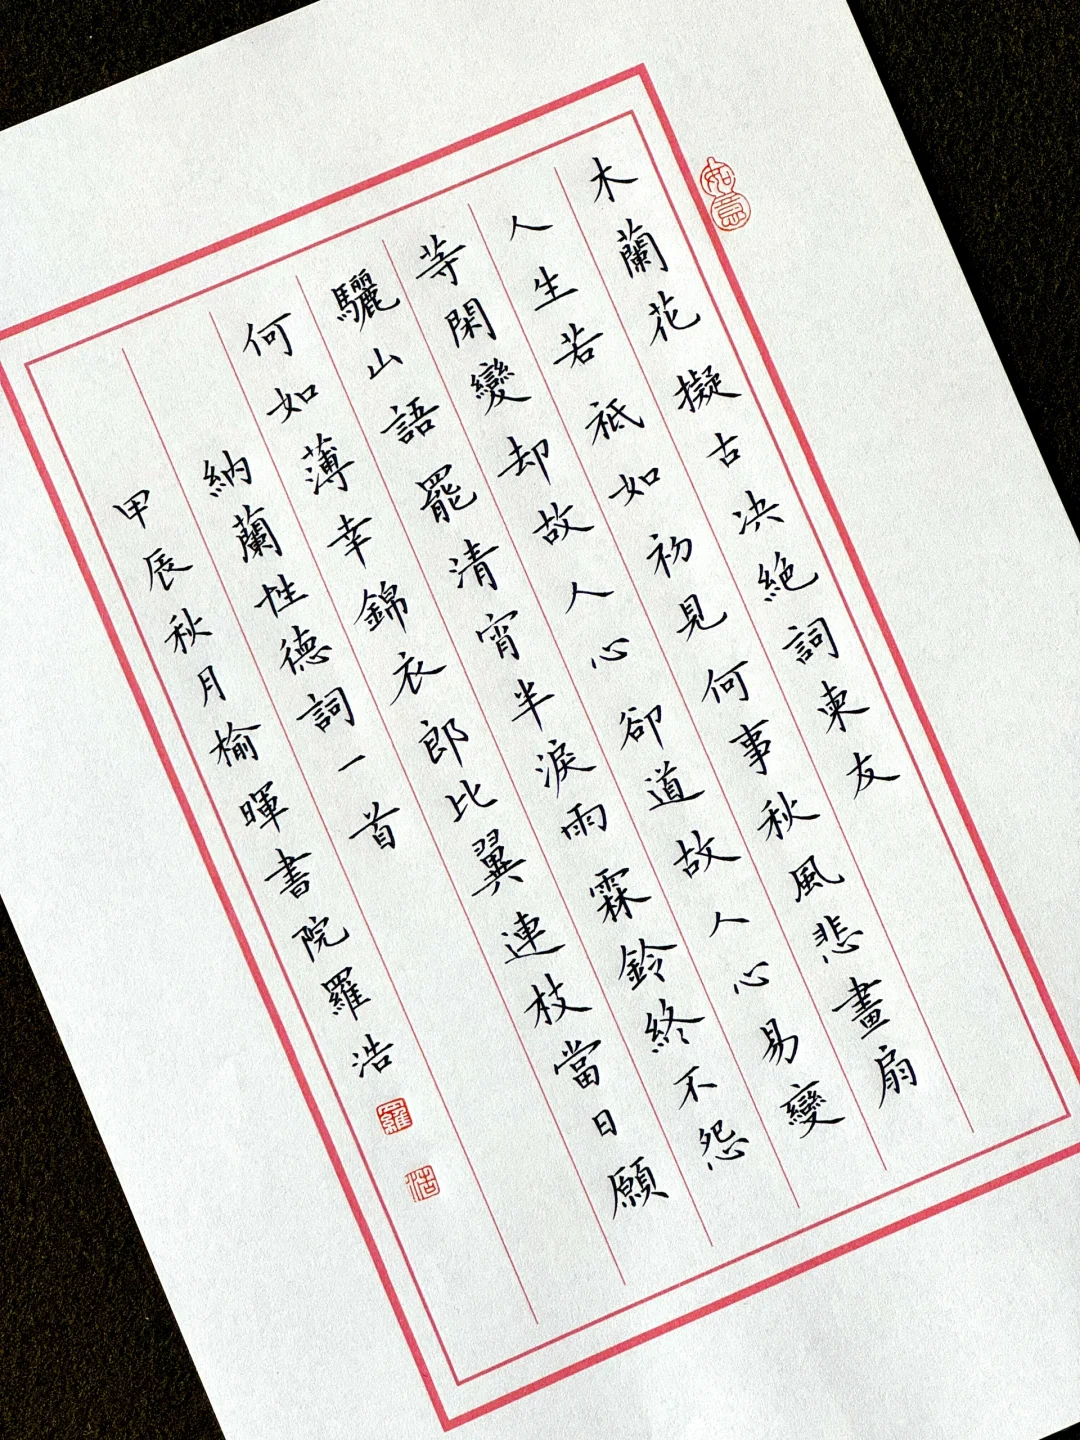 木蘭花擬古決絕詞柬友
人生若祗如初見何事秋風悲畫扇
等閑變却故人心卻道故人心易變
驪山語罷清宵半淚雨霖鈴終不怨
何如薄幸錦衣郎比翼連枝當日願
納蘭性德詞一首
甲辰秋月榆暉書院羅浩
如意
羅
浩